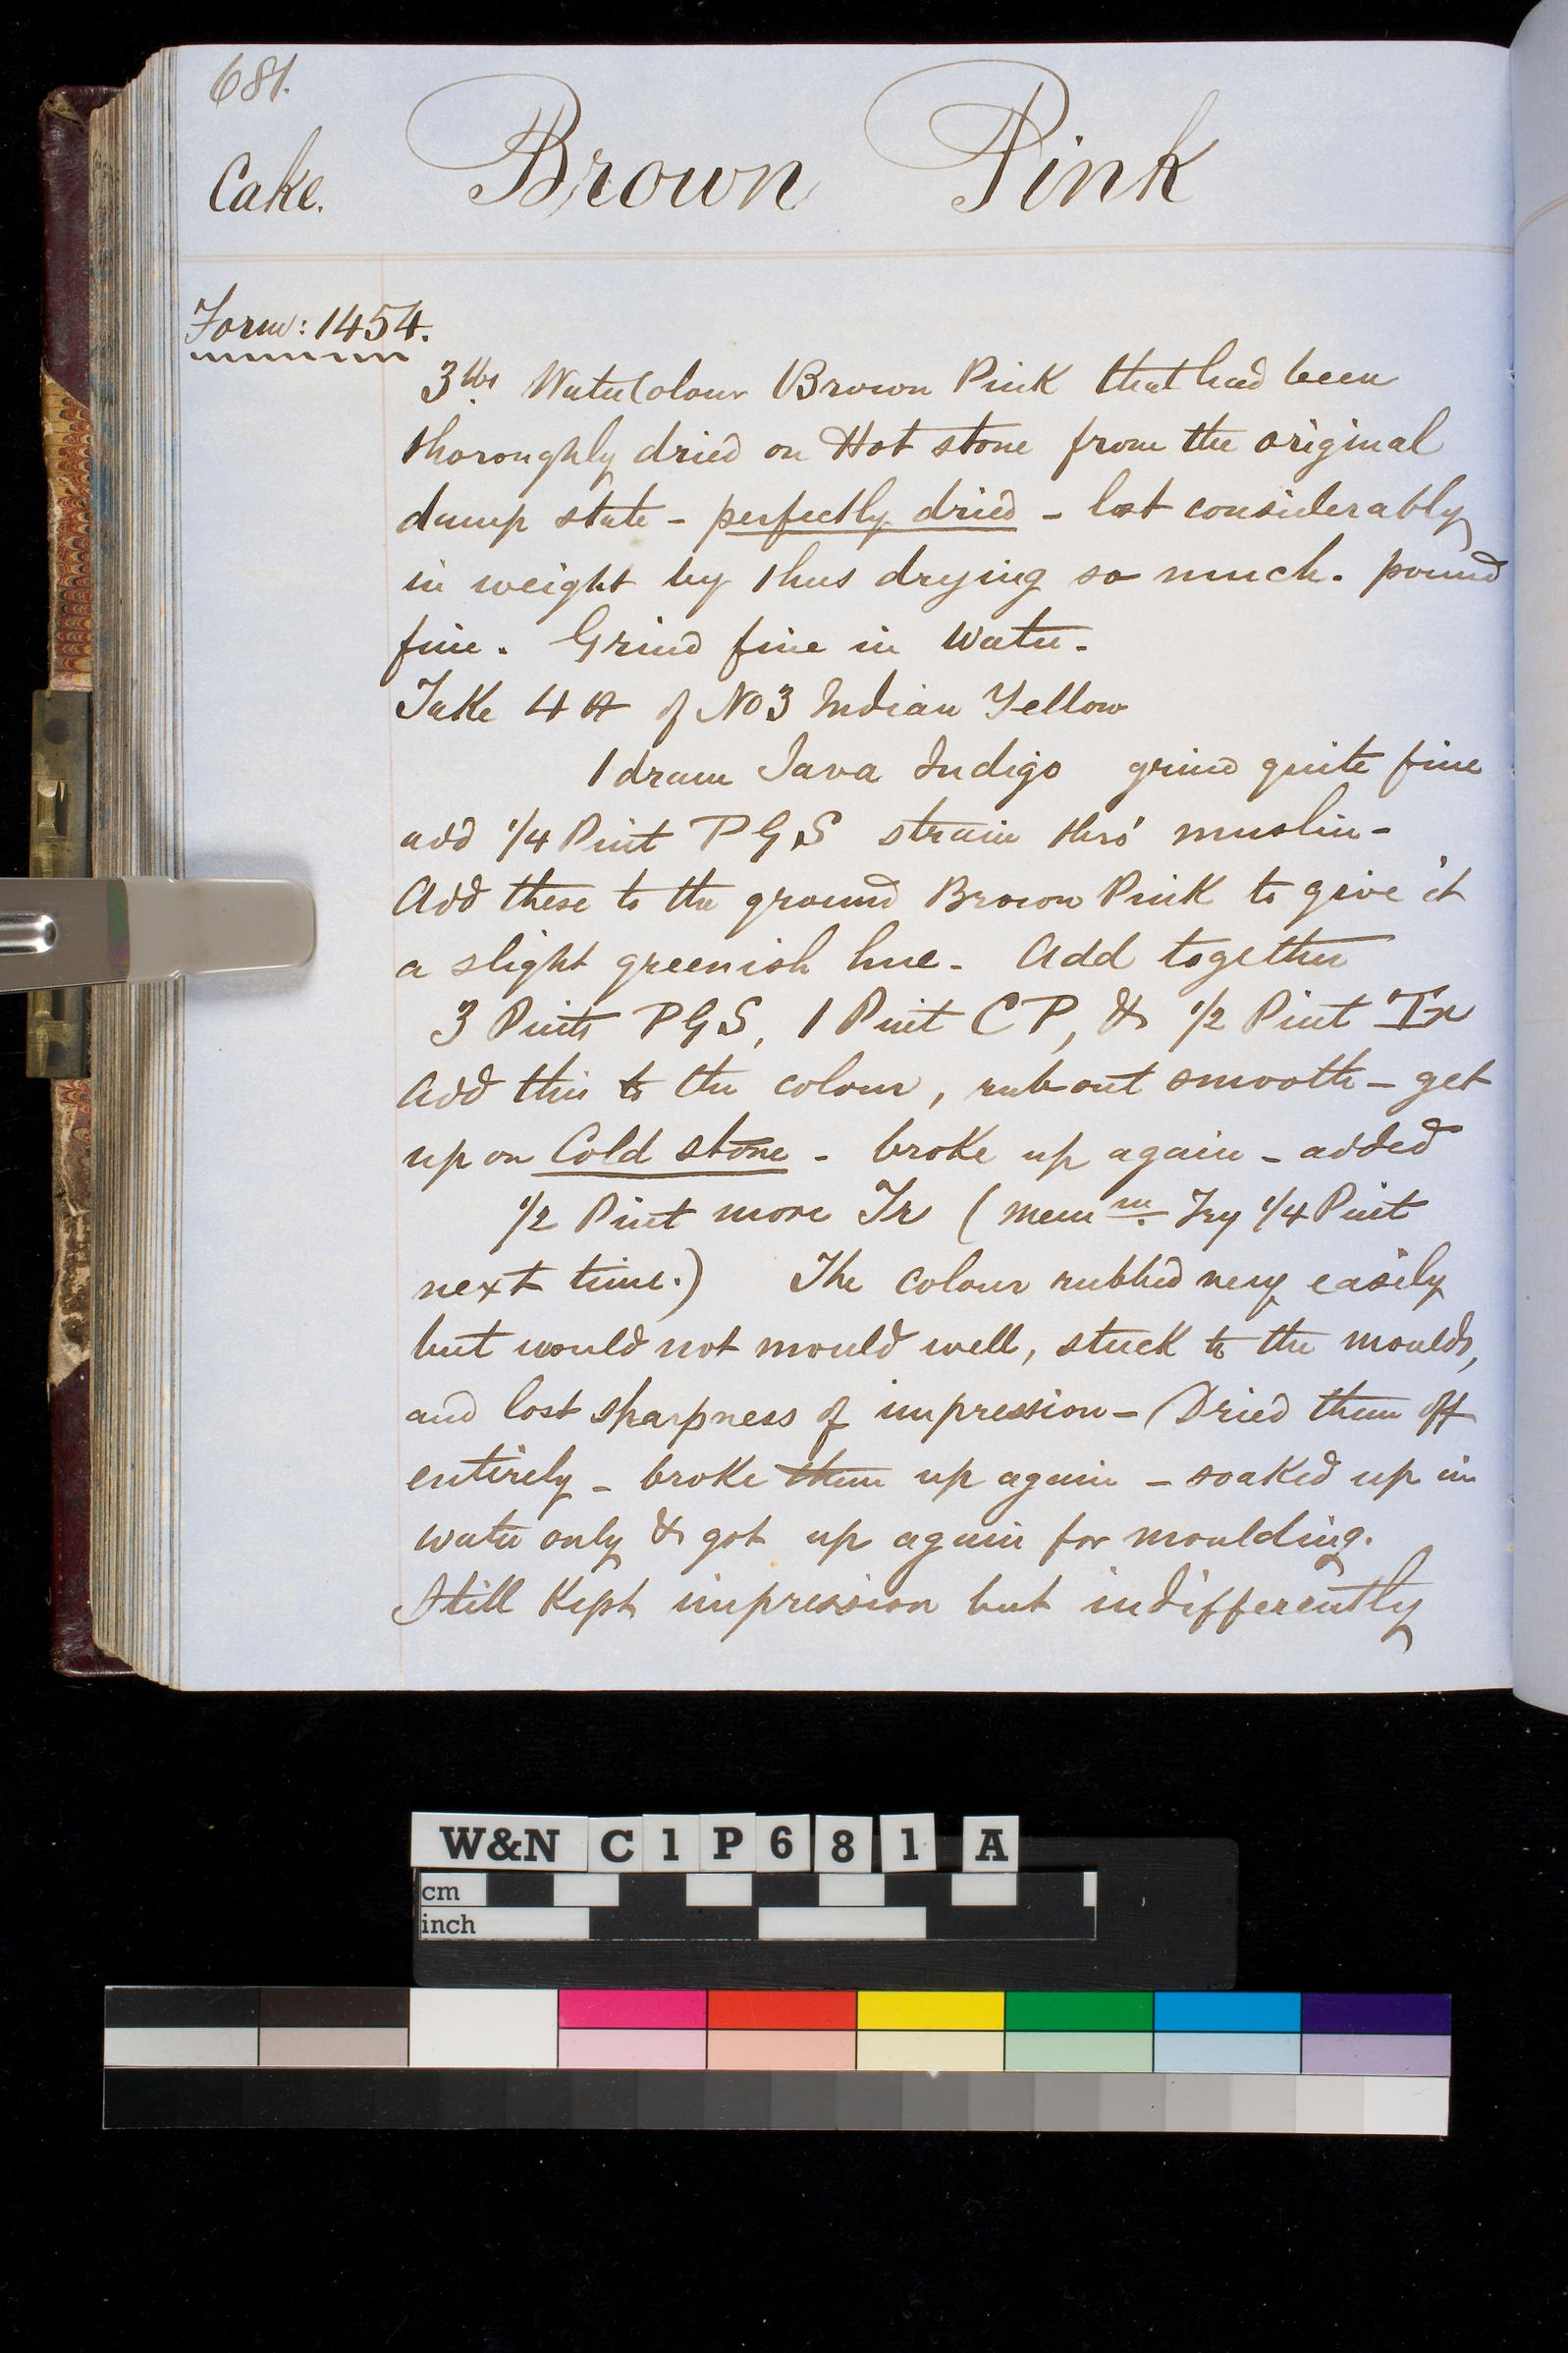 681.
Cake. Brown Pink
Form: 1454.
3 lbs Water Colour Brown Pink that had been
thoroughly dried on Hot stone from the original
damp state - perfectly dried - lost considerably
in weight by thus drying so much. pound
fine. Grind fine in Water.
Take 4 of No 3 Indian Yellow
1 dram Java Indigo grind quite fine
add 1/4 Pint P G S strain thro' muslin -
Add these to the ground Brown Pink to give it
a slight greenish hue - Add together
3 Pints P G S, 1 Pint C P, & 1/2 Pint Tr
Add this to the colour, rub out smooth - get
up on Cold stone - broke up again - added
1/2 Pint more Tr (mem m Try 1/4 Pint
next time.) The colour rubbed very easily
but would not mould well, stuck to the moulds,
and lost sharpness of impression - Dried them off
entirely - broke them up again - soaked up in
water only & got up again for moulding.
Still Kept impression but indifferently
W&N C 1 P 6 8 1 A
cm
inch